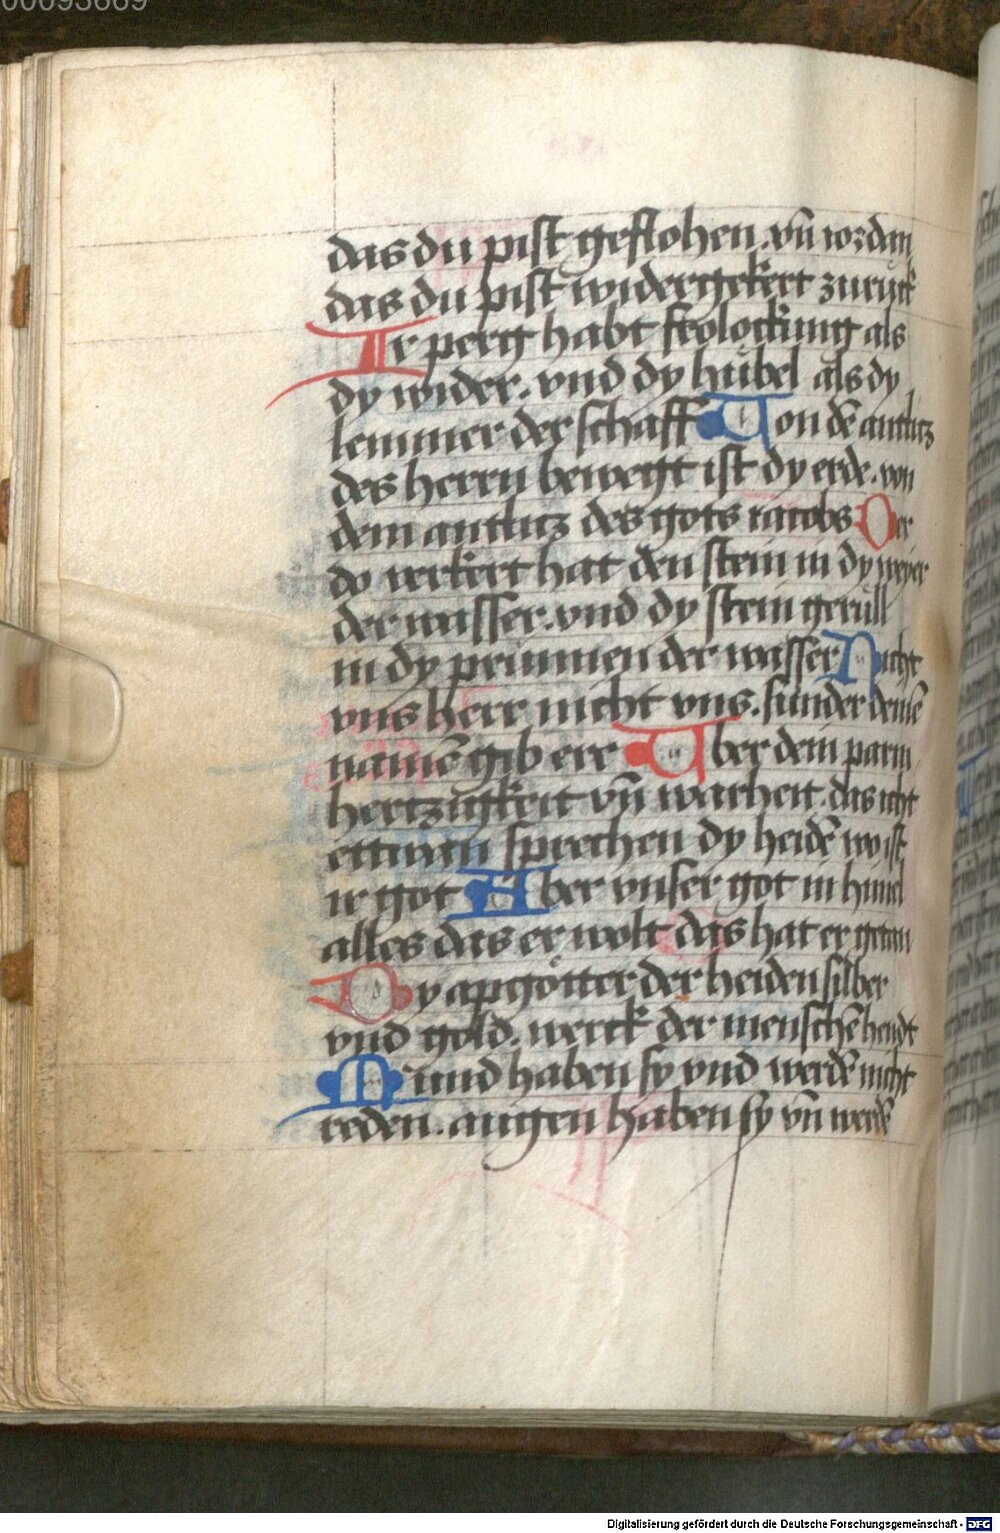 00093669
das du pist geflohen. vn̄ iordan
das du pist widergekert zuruck
Ir perg habt frolockung als
dy wider. vnd dy hübel als dy
lemmer der schaff Von dē antlitz
des herrn bewegt ist dy erde. von
dem antlitz des gots iacobs Der
do verkert hat den stein in dy weyer
der wasser. vnd dy stein gerüll
in dy prunnen der wasser Nicht
vns herr nicht vns. sunder deinē
namē gib ere Vber dein parm
hertzigkeit vn̄ warheit. das icht
ettwen sprechen dy heidē wo ist
ir got Aber vnser got in himel
alles das er wolt das hat er getan
Dy apgötter der heiden silber
vnd gold. werck der menschē hendt
Mund haben sy vnd werdē nicht
reden. augen haben sy vn̄ werdē
Digitalisierung gefördert durch die Deutsche Forschungsgemeinschaft - DFG